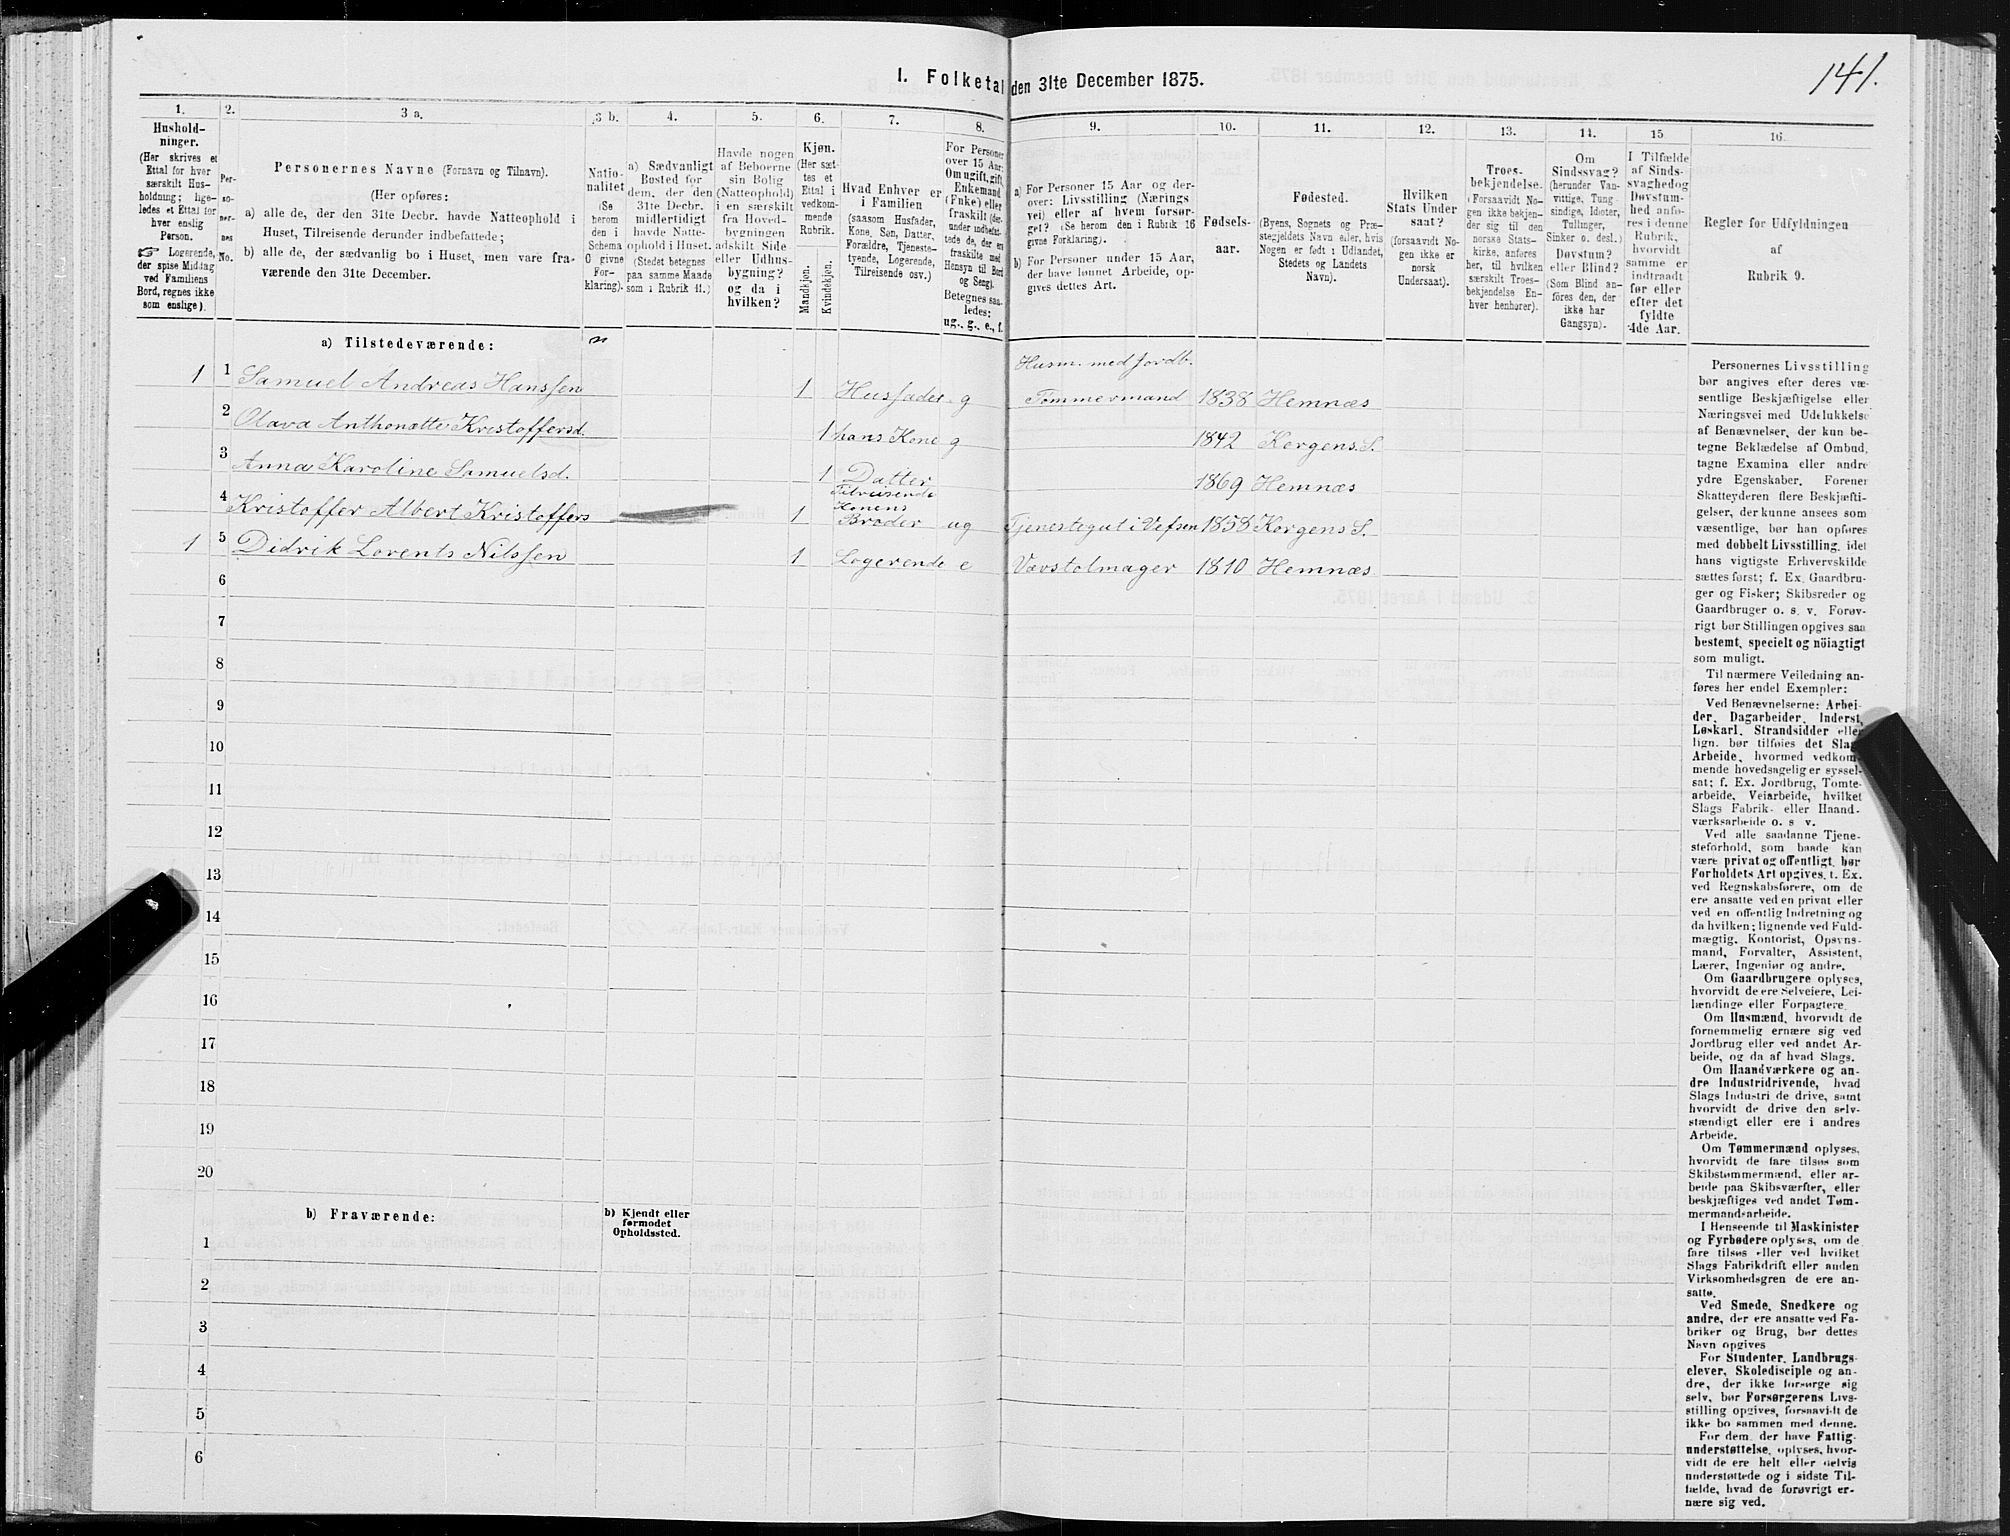 141.
I. Folketal den 31te December 1875.
1. 2. 3 a. 3 b. 4. 5. 6. 7. 8. 9. 10. 11. 12. 13. 14. 15 16.
Hushold-
ninger.
(Her skrives et
Ettal for hver
særskilt Hus-
holdning; lige-
ledes et Ettal for
hver enslig
Person.
☞ Logerende,
der spise Middag
ved Familiens
Bord, regnes ikke
som enslige).
Per-
so-
ner-
nes
No.
Personernes Navne (Fornavn og Tilnavn).
(Her opføres:
a) alle de, der den 31te Decbr. havde Natteophold i
Huset, Tilreisende derunder indbefattede;
b) alle de, der sædvanlig bo i Huset, men vare fra-
værende den 31te December.
Natio-
nalitet
(Se
herom
den i
Schema
O givne
For-
klaring).
a) Sædvanligt
Bosted for
dem, der den
31te Decbr.
midlertidigt
havde Natte-
ophold i Huset.
(Stedet betegnes
paa samme Maade
som i Rubrik 11.)
Havde nogen
af Beboerne
sin Bolig
(Natteophold)
i en særskilt
fra Hoved-
bygningen
adskilt Side
eller Udhus-
bygning?
og da i
hvilken?
Kjøn.
(Her sæt-
tes et
Ettal i
vedkom-
mende
Rubrik.
Mandkjøn.
Kvindekjøn.
Hvad Enhver er
i Familien
(saasom Husfader,
Kone, Søn, Datter,
Forældre, Tjeneste-
tyende, Logerende,
Tilreisende osv.)
For Personer
over 15 Aar:
Om ugift, gift,
Enkemand
(Enke) eller
fraskilt (der-
under indbefat-
tede de, der ere
fraskilte med
Hensyn til Bord
og Seng).
Betegnes saa-
ledes:
ug., g., e., f.
a) For Personer 15 Aar og der-
over: Livsstilling (Nærings
vei) eller af hvem forsør-
get? (Se herom den i Rubrik 16
givne Forklaring).
b) For Personer under 15 Aar,
der have lønnet Arbeide, op-
gives dettes Art.
Fødsels-
aar.
Fødested.
(Byens, Sognets og Præ-
stegjeldets Navn eller, hvis
Nogen er født i Udlandet,
Stedets og Landets
Navn).
Hvilken
Stats Under
saat?
(forsaavidt No-
gen ikke er
norsk
Undersaat).
Troes-
bekjendelse.
(Forsaavidt No-
gen ikke bekjen-
der sig til den
norske Stats-
kirke, anføres
her, til hvilken
særskilt Troes-
bekjendelse En-
hver henhører).
Om
Sindssvag?
(herunder Van-
vittige, Tung-
sindige, Idioter,
Tullinger,
Sinker o. desl.)
Døvstum?
eller Blind?
(Som Blind an-
føres den, der
ikke har
Gangsyn).
I Tilfælde
af Sinds-
svaghed og
Døvstum-
hed anfø-
res i denne
Rubrik,
hvorvidt
samme er
indtraadt
før eller
efter det
fyldte
4de Aar.
Regler for Udfyldningen
af
Rubrik 9.
a) Tilstedeværende: n
Husm. med Jordb.
1 1 Samuel Andreas Hanssen 1 Husfader g Tømmermand 1838 Hemnæs
2 Olava Anthonette Kristoffersd. 1 hans Kone g 1842 Korgens S.
3 Anna Karoline Samuelsd. 1 Datter 1869 Hemnæs
Tilreisende
Konens
4 Kristoffer Albert Kristoffers 1 Broder ug Tjenestegut i Vefsen 1858 Korgens S.
1 5 Didrik Lorents Nilssen 1 Logerende e Vævstolmager 1810 Hemnæs
6
7
8
9
10
11
12
13
14
15
16
17
18
19
20
b) Fraværende:
b) Kjendt eller
formodet
Opholdssted.
1
2
3
4
5
6
Personernes Livsstilling
bør angives efter deres væ-
sentlige Beskjæftigelse eller
Næringsvei med Udelukkelse
af Benævnelser, der kun be-
tegne Beklædelse af Ombud,
tagne Examina eller andre
ydre Egenskaber. Forener
Skatteyderen flere Beskjæfti-
gelser, der kunne ansees som
væsentlige, bør han opføres
med dobbelt Livsstilling, idet
hans vigtigste Erhvervskilde
sættes først; f. Ex. Gaardbru-
ger og Fisker; Skibsreder og
Gaardbruger o. s. v. Forøv-
rigt bør Stillingen opgives saa
bestemt, specielt og nöiagtigt
som muligt.
Til nærmere Veiledning an-
føres her endel Exempler:
Ved Benævnelserne: Arbei-
der, Dagarbeider, Inderst,
Løskarl, Strandsidder eller
lign. bør tilføies det Slags
Arbeide, hvormed vedkom-
mende hovedsagelig er syssel-
sat; f. Ex. Jordbrug, Tomte-
arbeide, Veiarbeide, hvilket
Slags Fabrik- eller Haand-
værksarbeide o. s. v.
Ved alle saadanne Tjene-
steforhold, som baade kan
være privat og offentligt, bør
Forholdets Art opgives, t. Ex.
ved Regnskabsførere, om de
ere ansatte ved en privat eller
ved en offentlig Indretning og
da hvilken; lignende ved Fuld-
mægtig, Kontorist, Opsyns-
mand, Forvalter, Assistent,
Lærer, Ingeniør og andre.
Om Gaardbrugere oplyses,
hvorvidt de ere Selveiere, Lei-
lændinge eller Forpagtere.
Om Husmænd, hvorvidt de
fornemmelig ernære sig ved
Jordbrug eller ved andet Ar-
beide, og da af hvad Slags.
Om Haandværkere og an-
dre Industridrivende, hvad
Slags Industri de drive, samt
hvorvidt de drive den selv-
stændigt eller ere i andres
Arbeide.
Om Tømmermænd oplyses,
hvorvidt de fare tilsøs som
Skibstømmermænd, eller ar-
beide paa Skibsværfter, eller
beskjæftiges ved andet Tøm-
mermandsarbeide.
I Henseende til Maskinister
og Fyrbødere oplyses, om de
fare tilsøs eller ved hvilket
Slags Fabrikdrift eller anden
Virksomhedsgren de ere an-
satte.
Ved Smede, Snedkere og
andre, der ere ansatte ved Fa-
briker og Brug, bør dettes
Navn opgives
For Studenter, Landbrugs-
elever, Skoledisciple og an-
dre, der ikke forsørge sig
selv, bør Forsørgerens Livs-
stilling opgives, forsaavidt de
ikke bo sammen med denne.
For dem, der have Fattig-
understøttelse, oplyses, hvor-
vidt de ere helt eller delvis
understøttede og i sidste Til-
fælde, hvad de forøvrigt er-
nære sig ved.